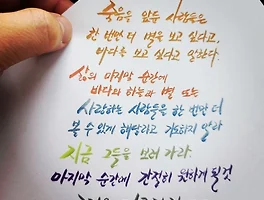 죽음을 앞둔 사람들은
한 번만 더 별을 보고 싶다고,
바다를 보고 싶다고 말한다.
삶의 마지막 순간에
바다와 하늘과 별 또는
사랑하는 사람들을 한 번만 더
볼 수 있게 해달라고 기도하지 말라
지금 그들을 보러 가라.
마지막 순간에 간절히 원하게 될 것